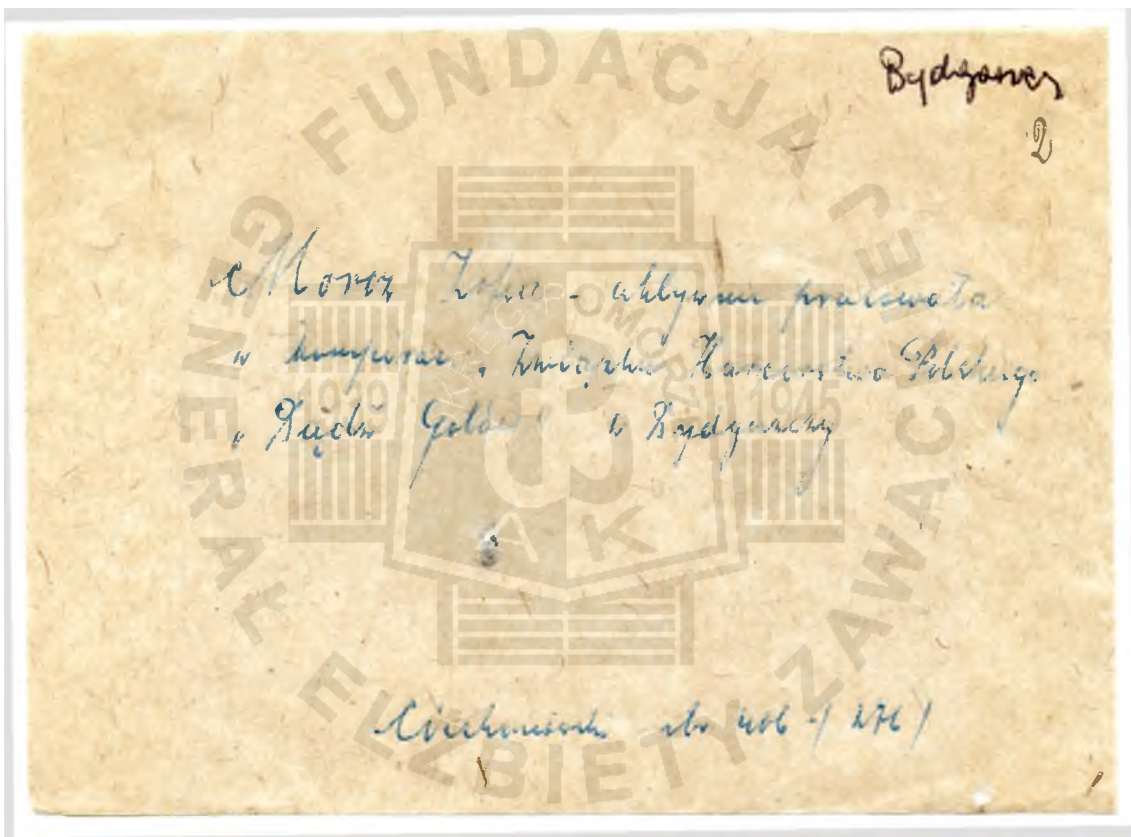 Bydgoszcz
2
Morcz Zofia - aktywnie pracowała
w konspirac. Związku Harcerstwa Polskiego
w Bydgoszczy
str 406 - ( 276 )
FUNDACJA GENERAŁ ELŻBIETY ZAWACKIEJ
1939 1945
AK